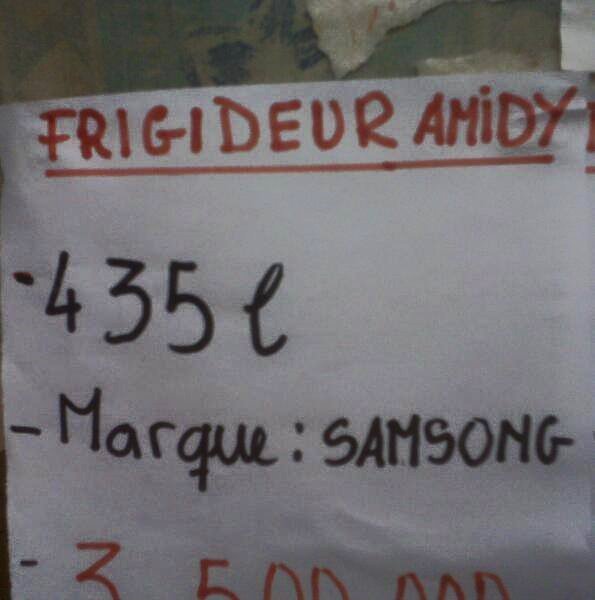 FRIGIDEUR AMiDY
435 l
- Marque : SAMSONG
- 3 500 000